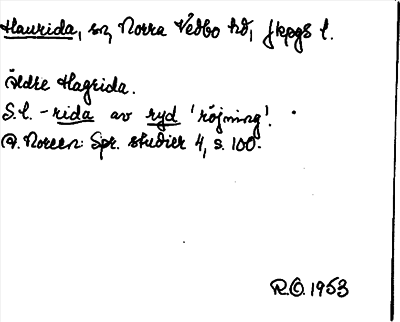 Haurida, sn, Norra Vedbo hd, Jkpgs l.
Äldre Hagrida.
S.l. -rida av ryd 'röjning'.
A. Noreen: Spr. studier 4, s. 100.
R.O. 1953